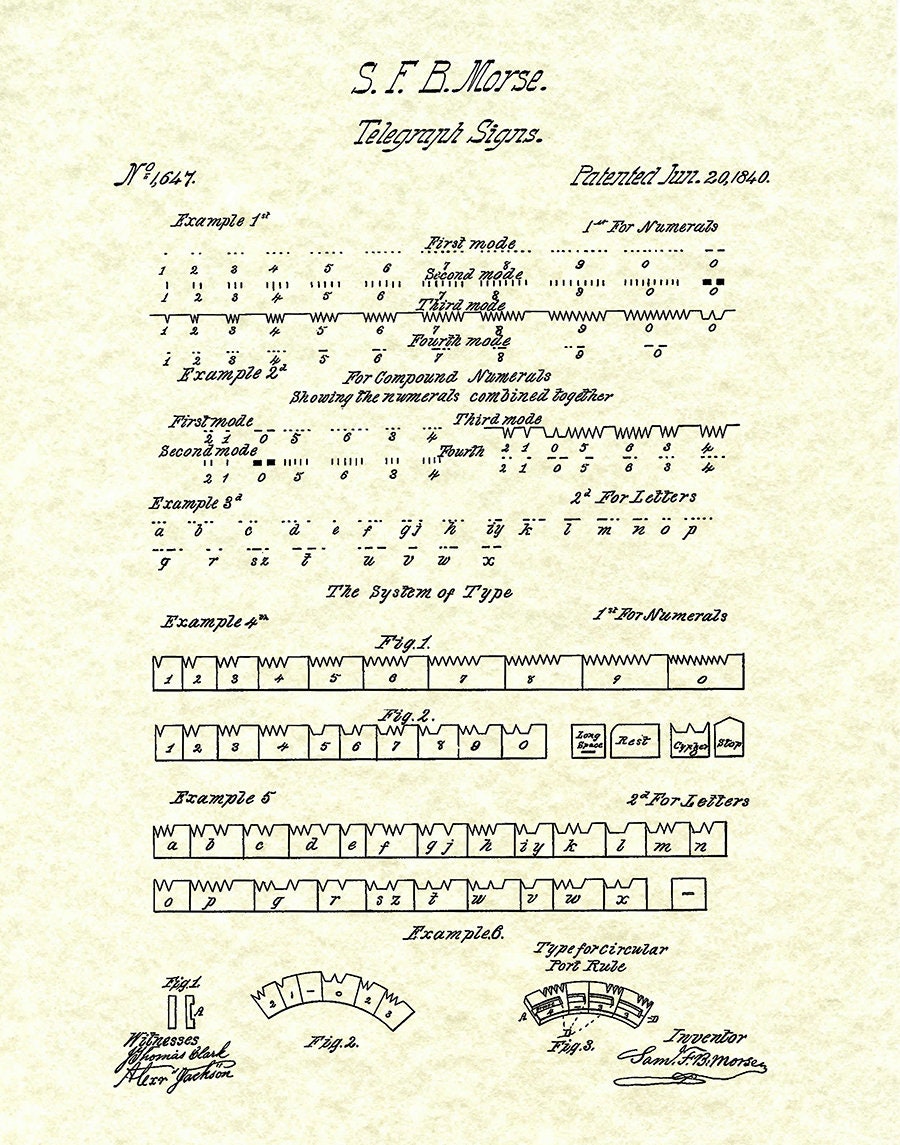 S. F. B. Morse.
Telegraph Signs.
No. 1,647. Patented Jun. 20, 1840.
Example 1st 1st For Numerals
First mode
1 2 3 4 5 6 7 8 9 0 0
Second mode
1 2 3 4 5 6 7 8 9 0 0
Third mode
1 2 3 4 5 6 7 8 9 0 0
Fourth mode
1 2 3 4 5 6 7 8 9 0
Example 2d For Compound Numerals
Showing the numerals combined together
First mode Third mode
2 1 0 5 6 3 4 2 1 0 5 6 3 4
Second mode Fourth
2 1 0 5 6 3 4 2 1 0 5 6 3 4
Example 3d 2d For Letters
a b c d e f g j h i y k l m n o p
q r s z t u v w x
The System of Type
Example 4th 1st For Numerals
Fig. 1.
1 2 3 4 5 6 7 8 9 0
Fig. 2.
1 2 3 4 5 6 7 8 9 0 Long Space Rest Cypher Stop
Example 5 2d For Letters
a b c d e f g j h i y k l m n
o p q r s z t w v w x
Example 6.
Type for Circular
Port Rule
Fig. 1
A
2 1 0 2 3
A D
D
Witnesses Fig. 2. Fig. 3. Inventor
Thomas Clark Sam. F. B. Morse
Alexr Jackson